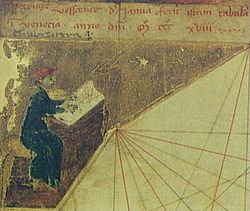 petrus Vessconte d'Janua fecit istam tabula
i Venecia · anno dñi · M̊ ccc̊ XVIII